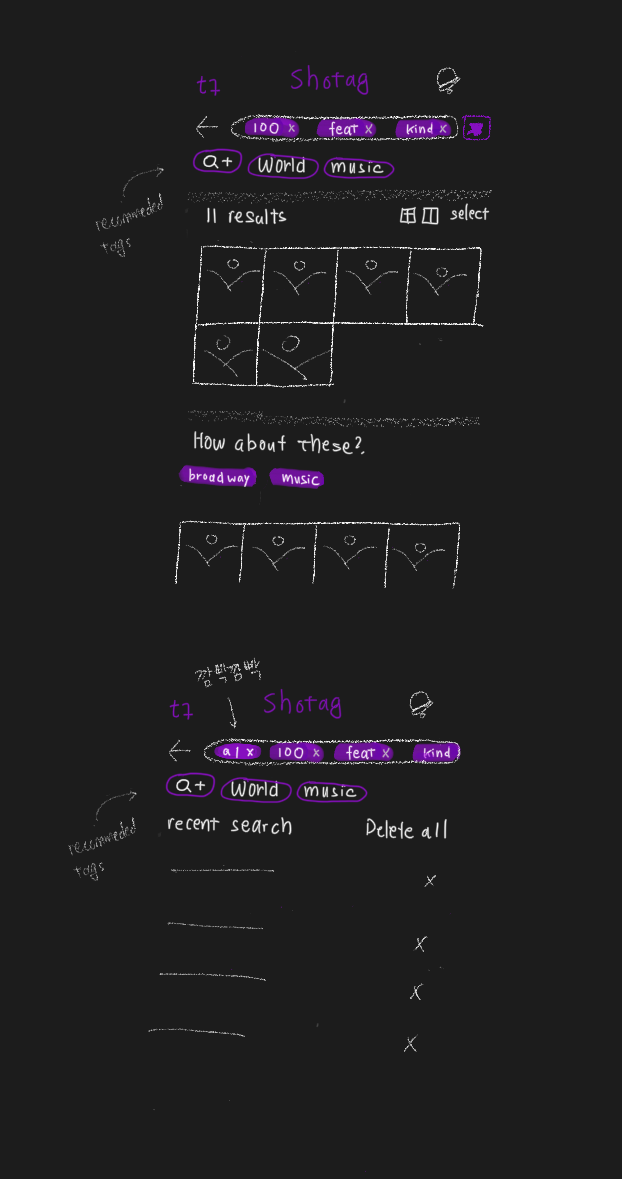 t7 Shotag
← 100 x feat x kind x
a+ World music
recommeded
tags
11 results select
How about these?
broadway music
깜빡깜빡
t7 Shotag
← a1 x 100 x feat x kind
a+ World music
recommeded
tags
recent search Delete all
x
x
x
x